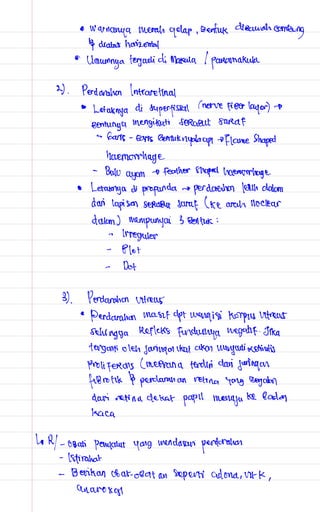 • Warnanya merah gelap, Bentuk dibawah cembung
& diatas horizontal
• Umumnya terjadi di Makula / paramakula
2). Perdarahan Intraretinal
• Letaknya di superfisial (nerve fiber layer) →
Bentuknya mengikuti serabut saraf
- Garis - Garis Bentuk nyala api → Flame Shaped
haemorrhage
- Bulu ayam → feather shaped haemorrhage
• Letaknya di profunda → perdarahan lebih dalam
dari lapisan serabut saraf (ke arah nuclear
dalam) mempunyai 3 Bentuk :
- Irreguler
- Blot
- Dot
3). Perdarahan vitreus
• Perdarahan masif dpt mengisi korpus vitreus
sehingga Refleks Fundusnya negatif. Jika
terganti oleh jaringan ikat akan menjadi Retinitis
Proliferans (membrana terdiri dari jaringan
fibrotik & perdarahan retina yang Berjalan
dari retina dekat papil menuju ke Badan
kaca
↳ R/ - obati penyakit yang mendasari perdarahan
- Istirahat
- Berikan obat-obatan seperti adona, vit-K,